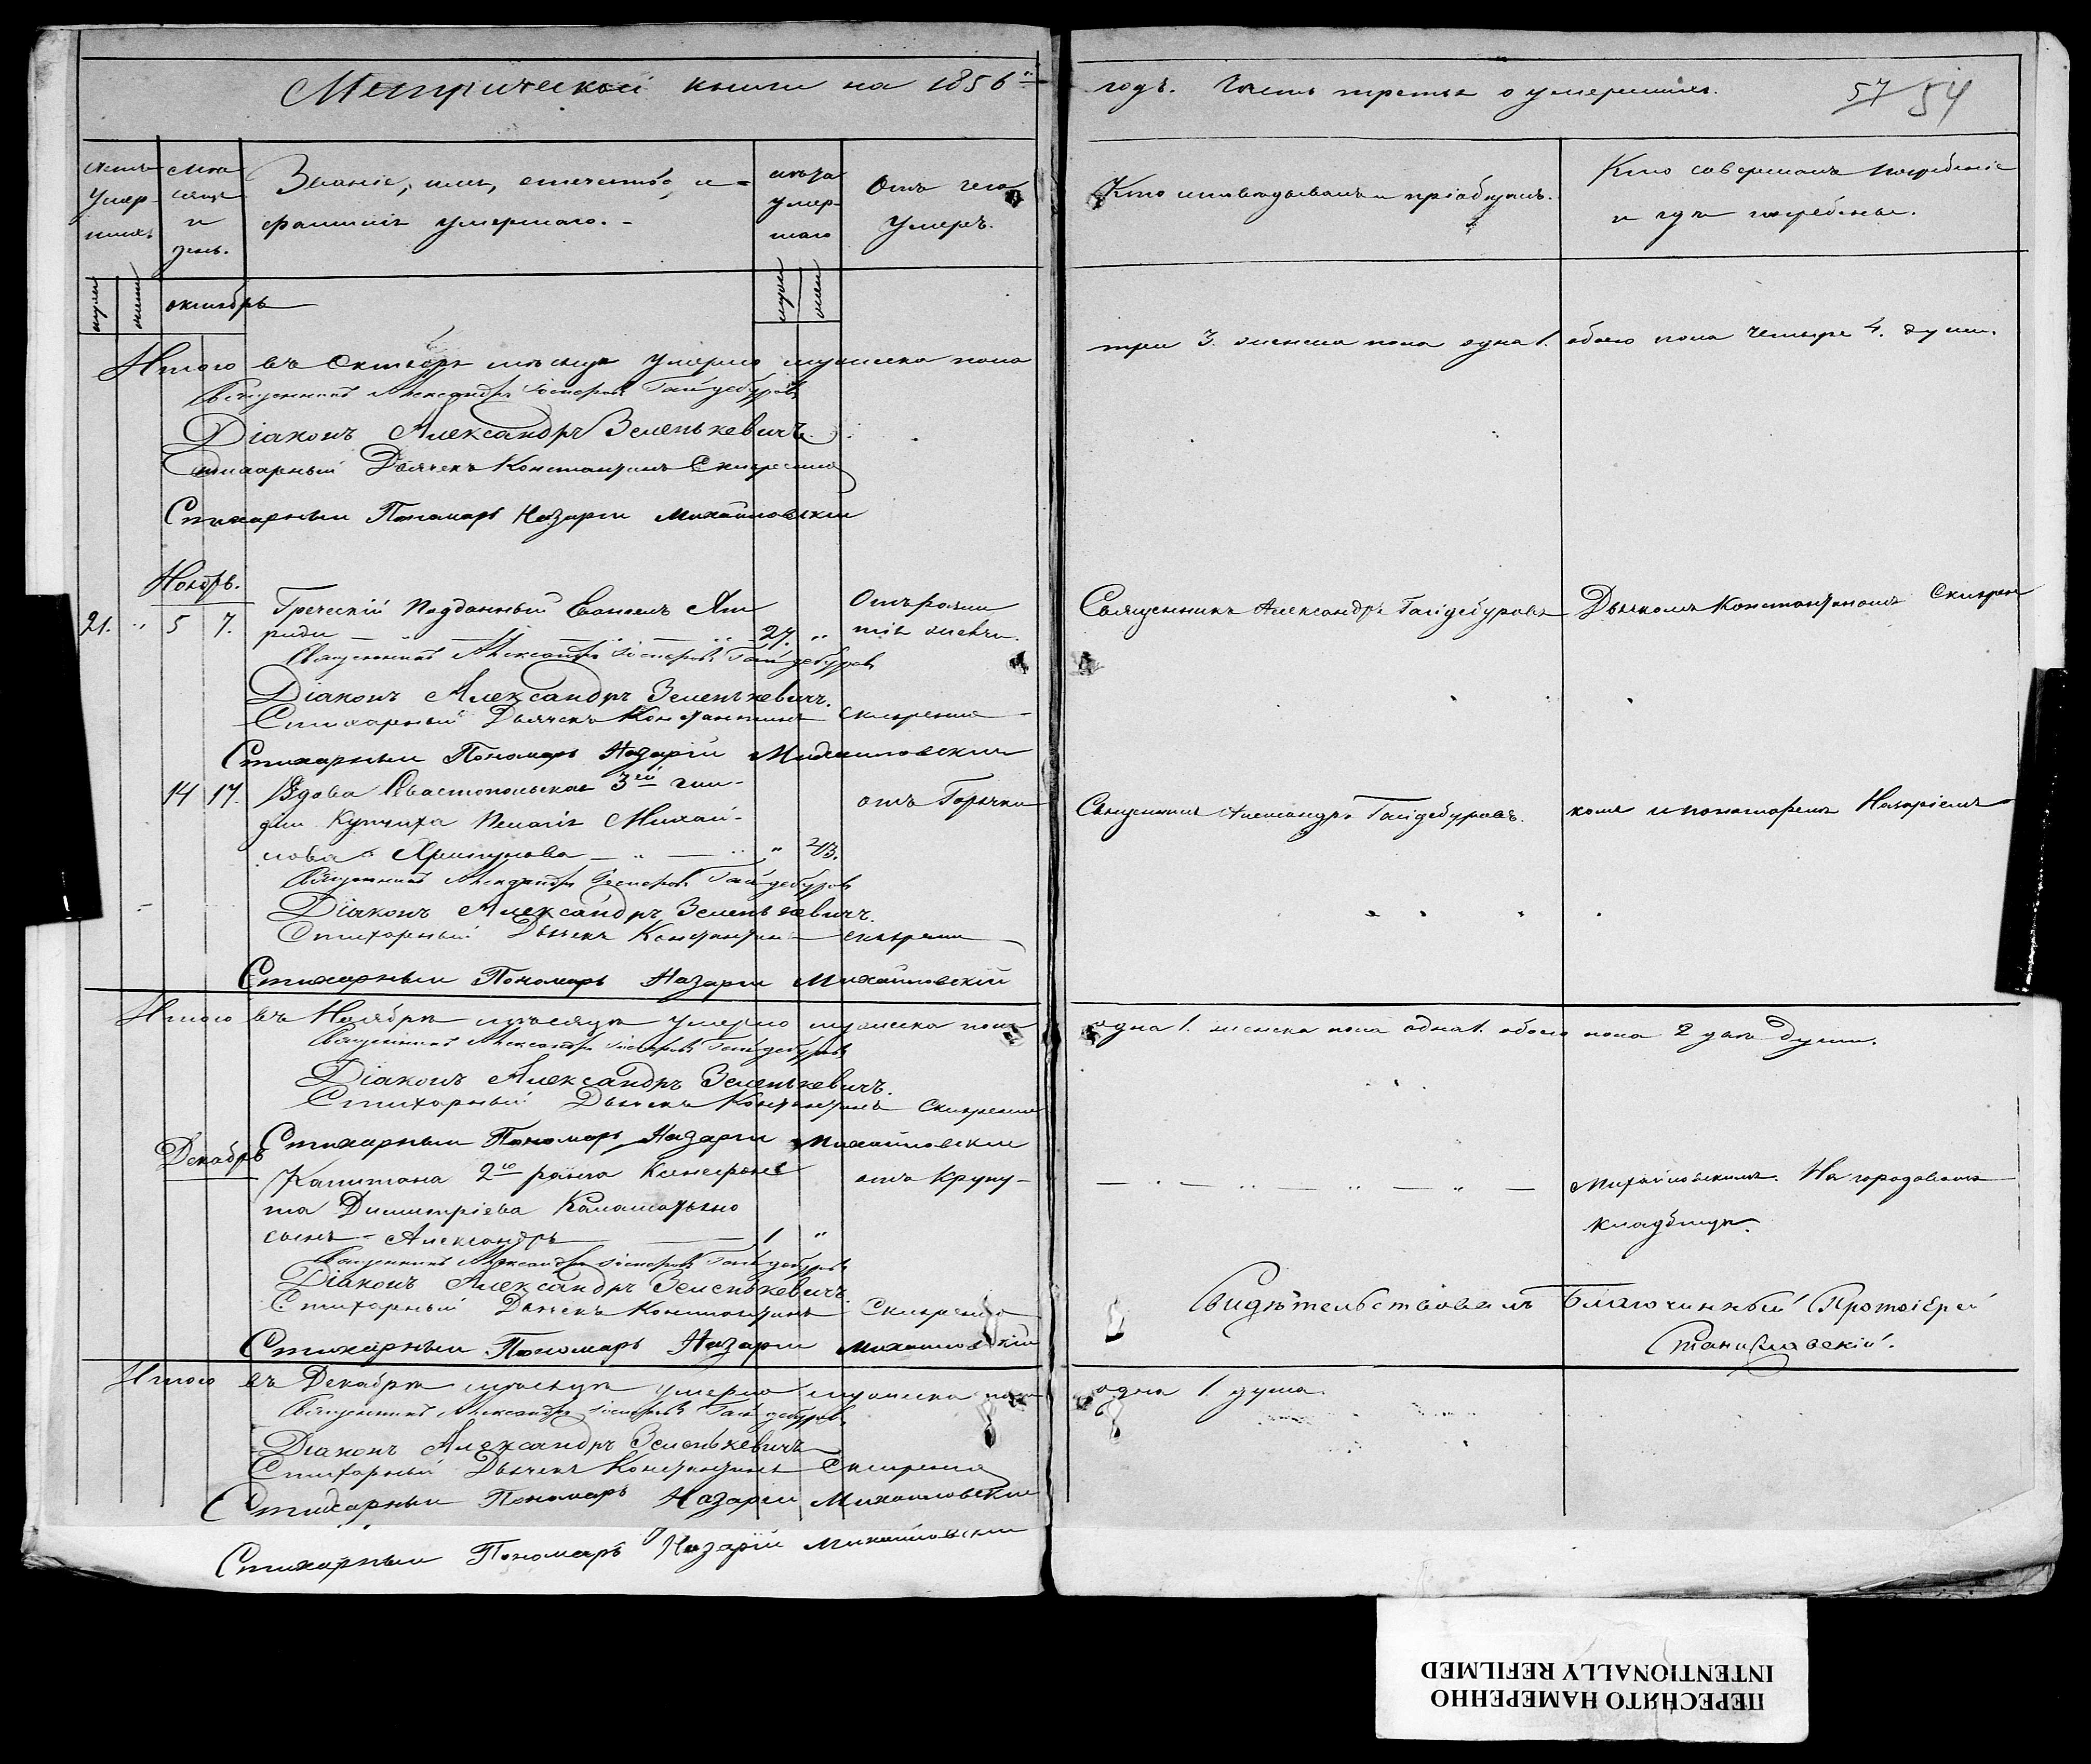 Метрической книги на 1856й
годъ. Часть третья о умершихъ.
57 54
Умер-
шихъ
Мѣся
и
день.
Званіе, имя, отечество, и
фамилія умершаго.
лѣта
умер-
шаго
Отъ чего
умеръ.
Кто исповѣдывалъ и пріобщалъ.
Кто совершалъ погребеніе
и гдѣ погребены.
октябрь
Итого въ Октябрѣ мѣсяцѣ умерло мужеска пола
три 3. женска пола одна 1. обоего пола четыре 4. души.
Священникъ Александръ Гайдебуровъ
Діаконъ Александръ Зеленкевичъ
Стихарный Дьячекъ Константинъ
Стихарный Пономарь Назарій Михайловскій
Ноябрь.
Греческій Подданный
21. " 5 7.
27. "
Священникъ Александръ Гайдебуровъ
Дьякомъ Константиномъ
Священникъ Александръ Гайдебуровъ
Діаконъ Александръ Зеленькевичъ.
Стихарный Дьячекъ Константинъ
Стихарный Пономарь Назарій Михайловскій
14 17. Вдова Севастопольская 3ей гил-
діи Купчиха Пелагія Михай-
лова " 43.
отъ Горячки
Священникъ Александръ Гайдебуровъ.
и пономаремъ Назаріемъ
Священникъ Александръ Гайдебуровъ
Діаконъ Александръ Зеленькевичъ.
Стихарный Дьячекъ Константинъ
Стихарный Пономарь Назарій Михайловскій
Итого въ Ноябрѣ мѣсяцѣ умерло мужеска пола
одна 1. женска пола одна 1. обоего пола 2 двѣ души.
Священникъ Александръ Гайдебуровъ
Діаконъ Александръ Зеленькевичъ.
Стихарный Дьячекъ Константинъ
Стихарный Пономарь Назарій Михайловскій
Декабрь
Капитана 2го ранга Ксенофон
та Димитріева
сынъ Александръ 1 "
отъ Крупу
Михайловскимъ. На городовомъ
кладбищѣ.
Священникъ Александръ Гайдебуровъ
Діаконъ Александръ Зеленькевичъ.
Стихарный Дьячекъ Константинъ
Свидѣтельствовалъ Благочинный Протоіерей
Станиславскій.
Стихарный Пономарь Назарій Михайловскій
Итого въ Декабрѣ мѣсяцѣ умерло мужеска пола
одна 1. душа.
Священникъ Александръ Гайдебуровъ
Діаконъ Александръ Зеленькевичъ
Стихарный Дьячекъ Константинъ
Стихарный Пономарь Назарій Михайловскій
Стихарный Пономарь Назарій Михайловскій
ПЕРЕСНЯТО НАМЕРЕННО
INTENTIONALLY REFILMED